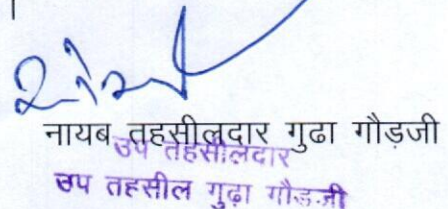 नायब तहसीलदार गुढा गौड़जी
उप तहसीलदार
उप तहसील गुढ़ा गौड़जी